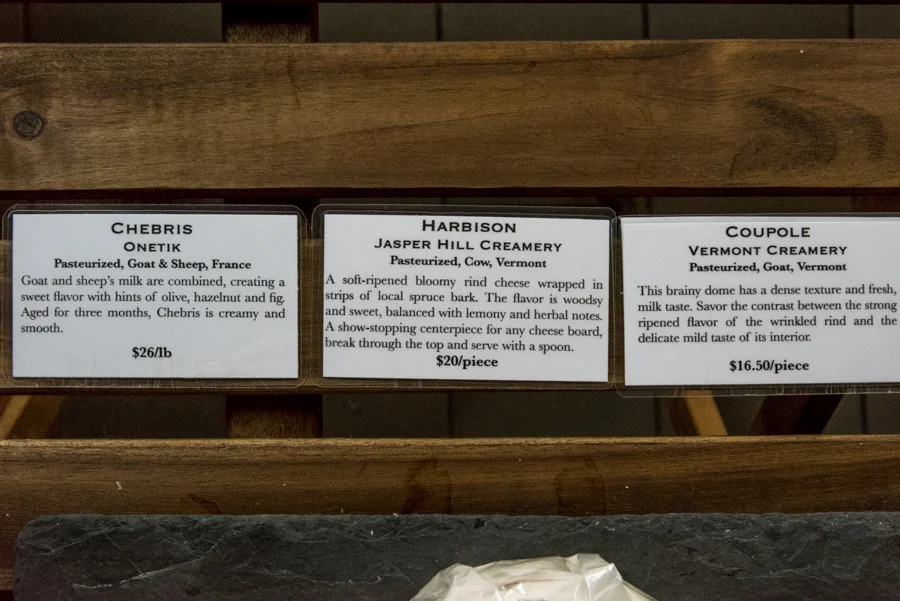 CHEBRIS
ONETIK
Pasteurized, Goat & Sheep, France
Goat and sheep's milk are combined, creating a
sweet flavor with hints of olive, hazelnut and fig.
Aged for three months, Chebris is creamy and
smooth.
$26/lb
HARBISON
JASPER HILL CREAMERY
Pasteurized, Cow, Vermont
A soft-ripened bloomy rind cheese wrapped in
strips of local spruce bark. The flavor is woodsy
and sweet, balanced with lemony and herbal notes.
A show-stopping centerpiece for any cheese board,
break through the top and serve with a spoon.
$20/piece
COUPOLE
VERMONT CREAMERY
Pasteurized, Goat, Vermont
This brainy dome has a dense texture and fresh,
milk taste. Savor the contrast between the strong
ripened flavor of the wrinkled rind and the
delicate mild taste of its interior.
$16.50/piece